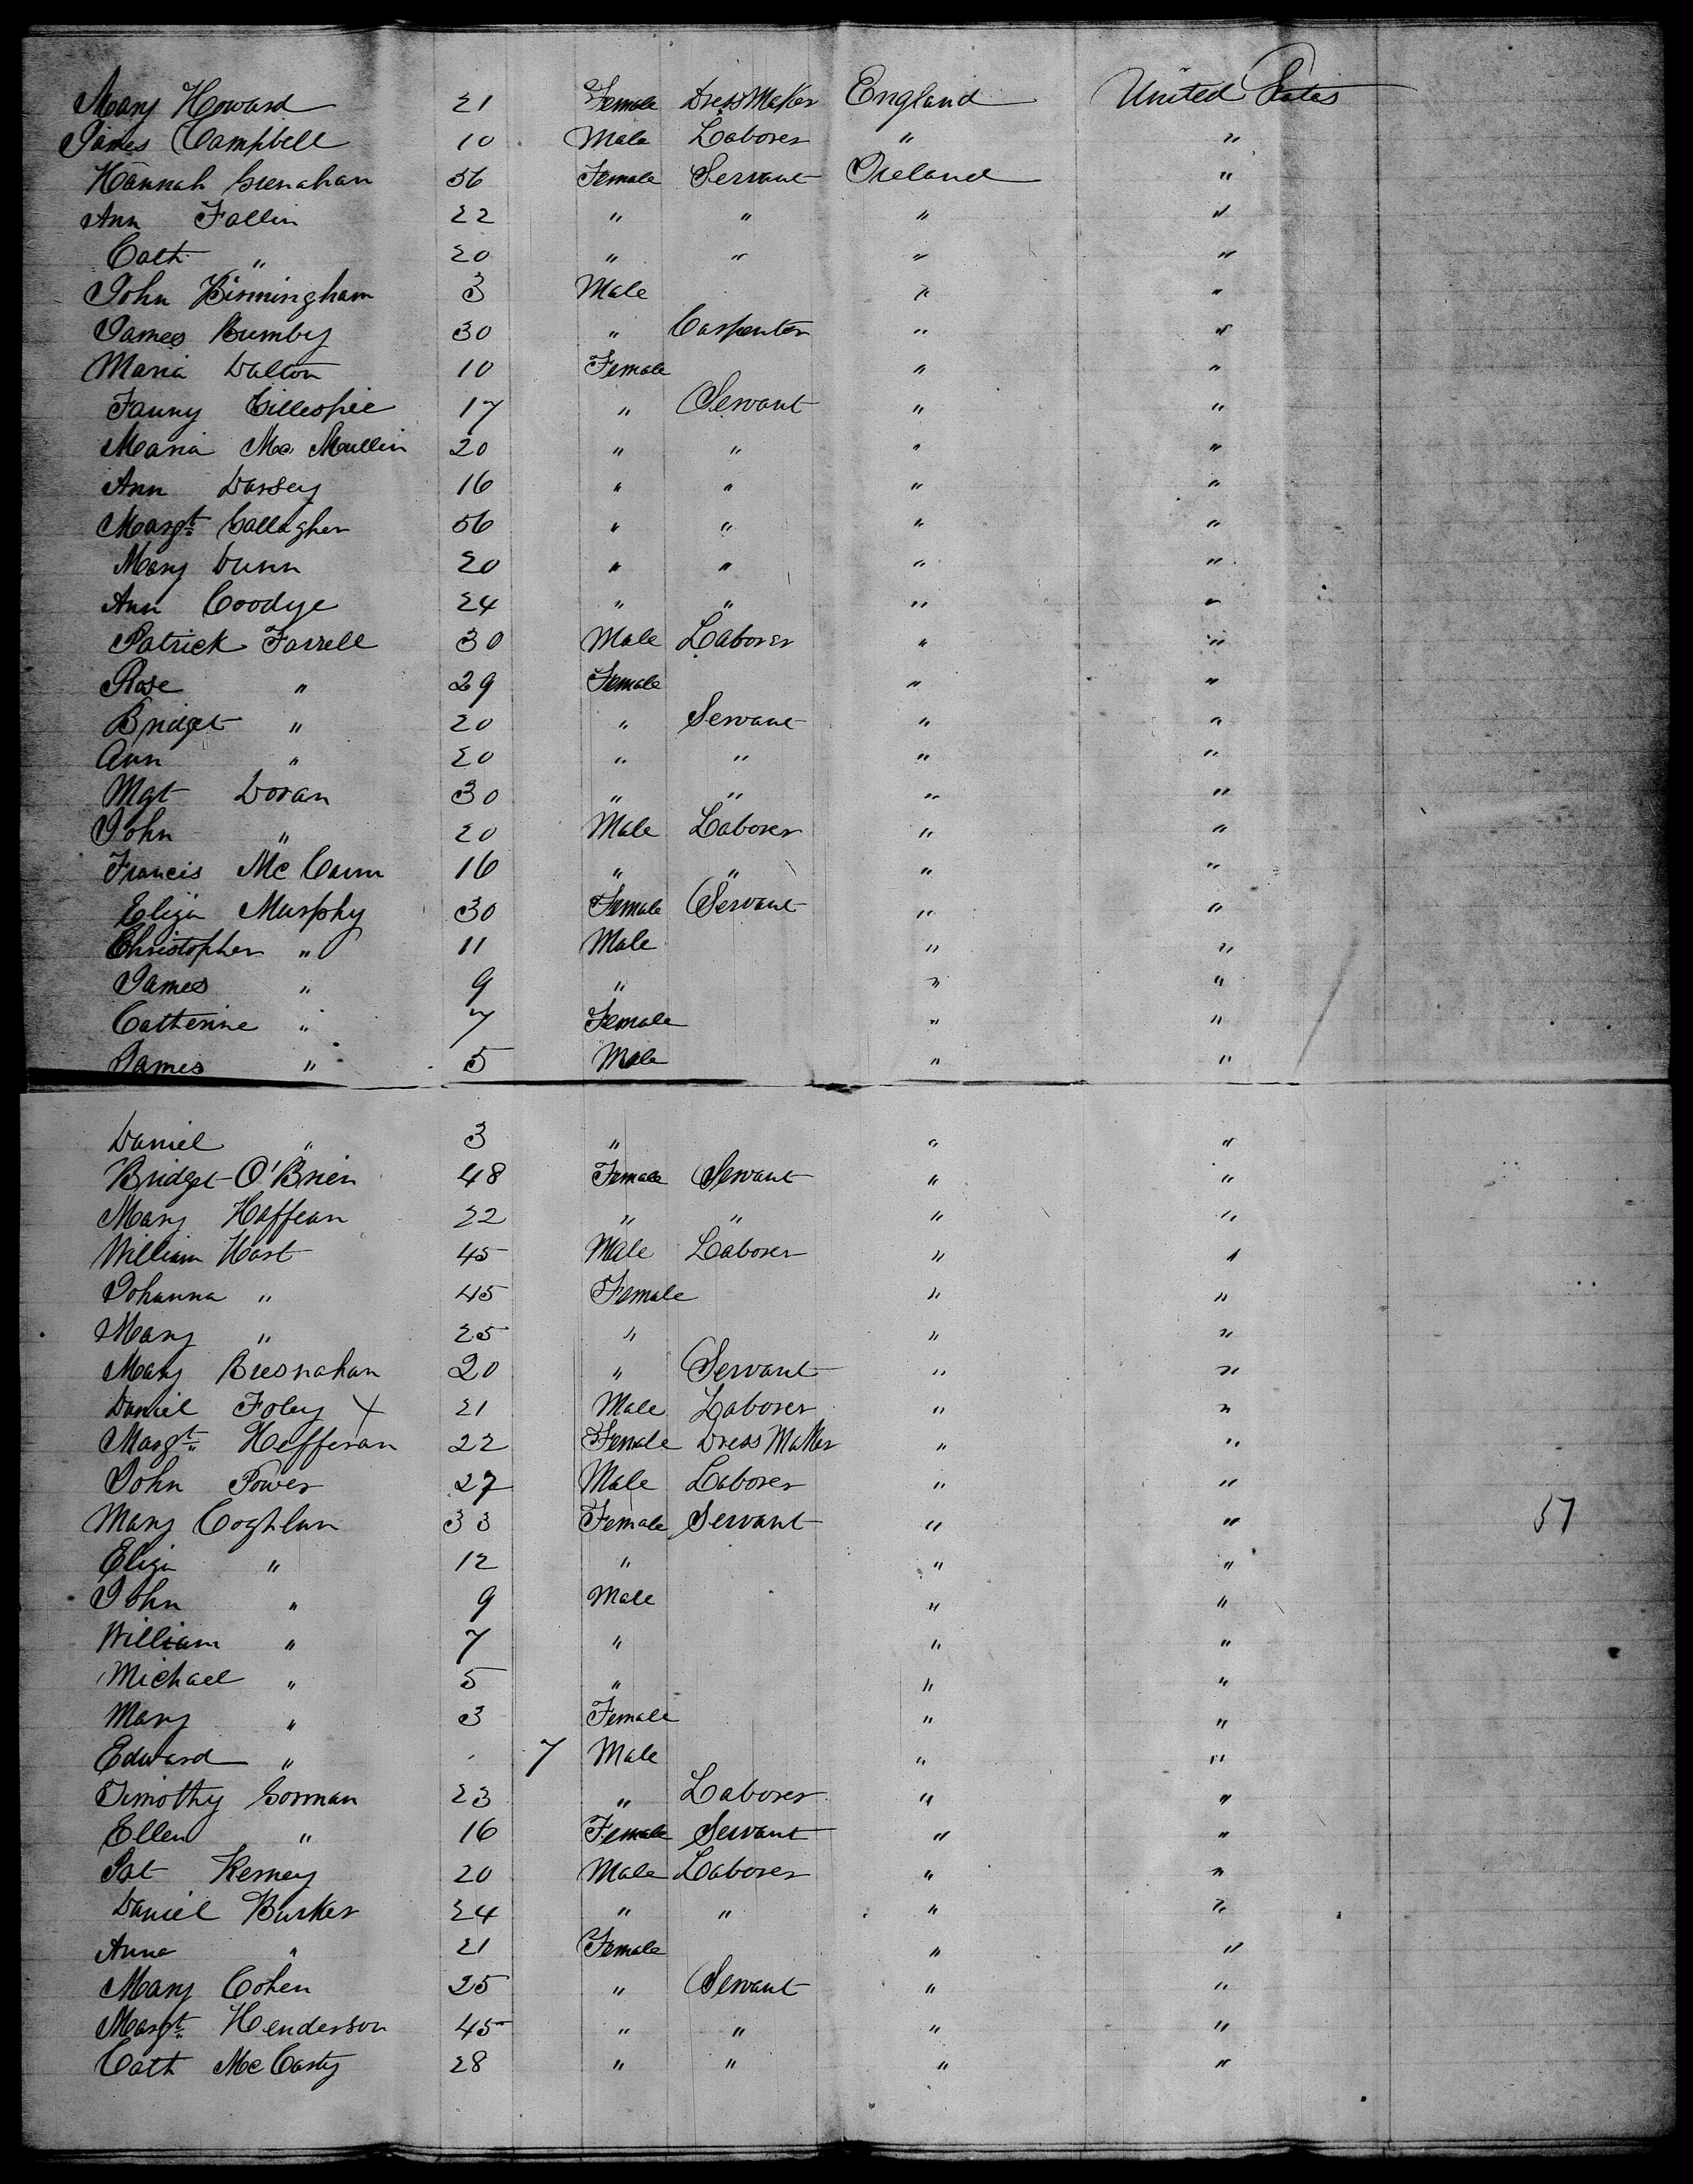 Mary Howard 21 Female Dress Maker England United States
James Campbell 10 Male Laborer " "
Hannah Grenahan 56 Female Servant Ireland "
Ann Fallin 22 " " " "
Cath " 20 " " " "
John Birmingham 3 Male " "
James Bumby 30 " Carpenter " "
Maria Dalton 10 Female " "
Fanny Gillespie 17 " Servant " "
Maria Mc Mullin 20 " " " "
Ann Darsey 16 " " " "
Margt Gallagher 56 " " " "
Mary Dunn 20 " " " "
Ann Coodye 24 " " " "
Patrick Farrell 30 Male Laborer " "
Rose " 29 Female " "
Bridget " 20 " Servant " "
Ann " 20 " " " "
Mgt Doran 30 " " " "
John " 20 Male Laborer " "
Francis Mc Cann 16 " " " "
Eliza Murphy 30 Female Servant " "
Christopher " 11 Male " "
James " 9 " " "
Catherine " 7 Female " "
James " 5 Male " "
Daniel " 3 " " "
Bridget O'Brien 48 Female Servant " "
Mary Haffean 22 " " " "
William Hart 45 Male Laborer " "
Johanna " 45 Female " "
Mary " 25 " " "
Mary Bresnahan 20 " Servant " "
Daniel Foley X 21 Male Laborer " "
Margt Hefferan 22 Female Dress Maker " "
John Power 27 Male Laborer " "
Mary Coghlan 33 Female Servant " " 57
Eliza " 12 " " "
John " 9 Male " "
William " 7 " " "
Michael " 5 " " "
Mary " 3 Female " "
Edward " 7 Male " "
Timothy Gorman 23 " Laborer " "
Ellen " 16 Female Servant " "
Pat Kerney 20 Male Laborer " "
Daniel Burker 24 " " " "
Anna " 21 Female " "
Mary Cohen 25 " Servant " "
Margt Henderson 45 " " " "
Cath McCarty 28 " " " "